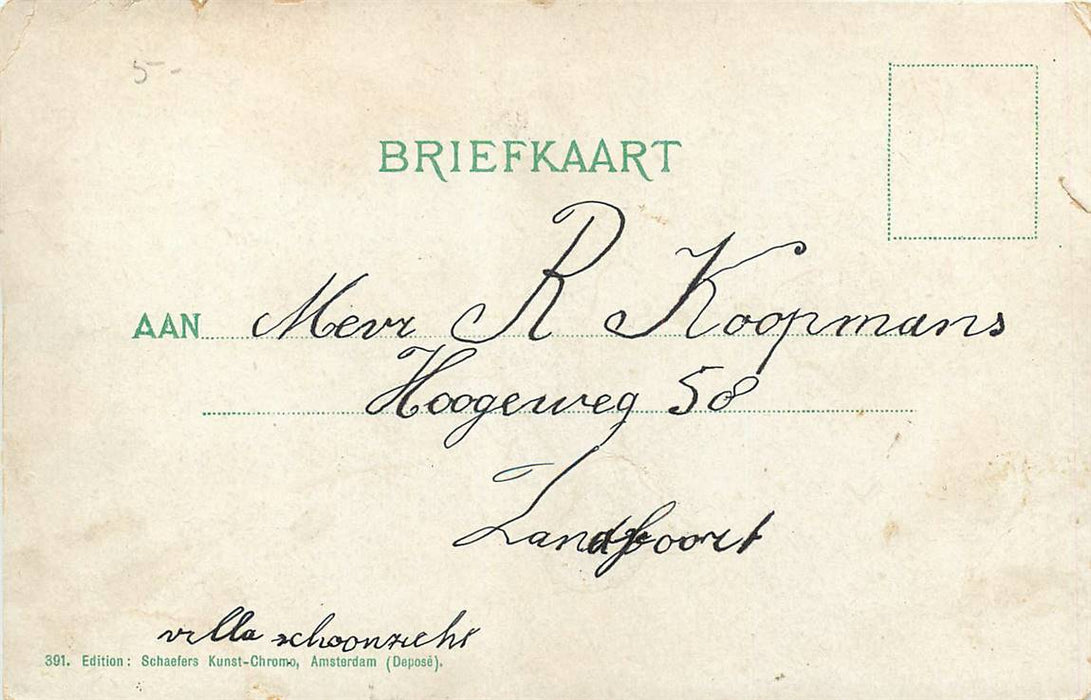 5-
BRIEFKAART
AAN Mevr R Koopmans
Hoogerweg 58
Zandfoort
villa schoonzicht
391. Edition: Schaefers Kunst-Chromo, Amsterdam (Deposé).